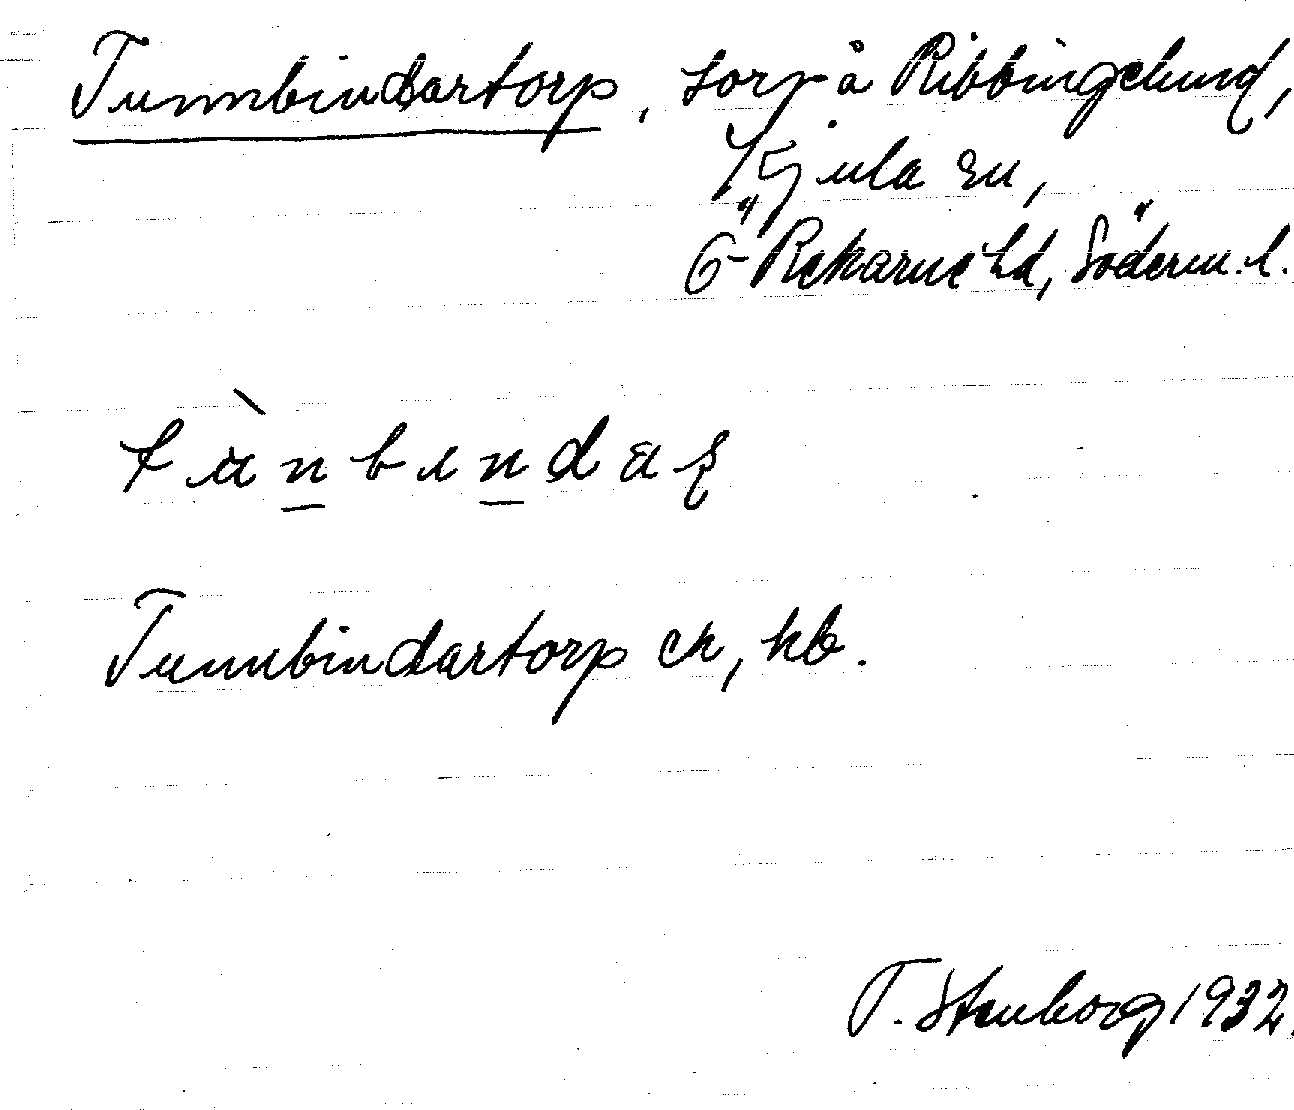 Tunnbindartorp, torp å Ribbingelund,
Kjula sn,
Ö-Rekarne hd, Söderm. l.
Tunnbindartorp ek, kb.
T. Stenborg 1932.